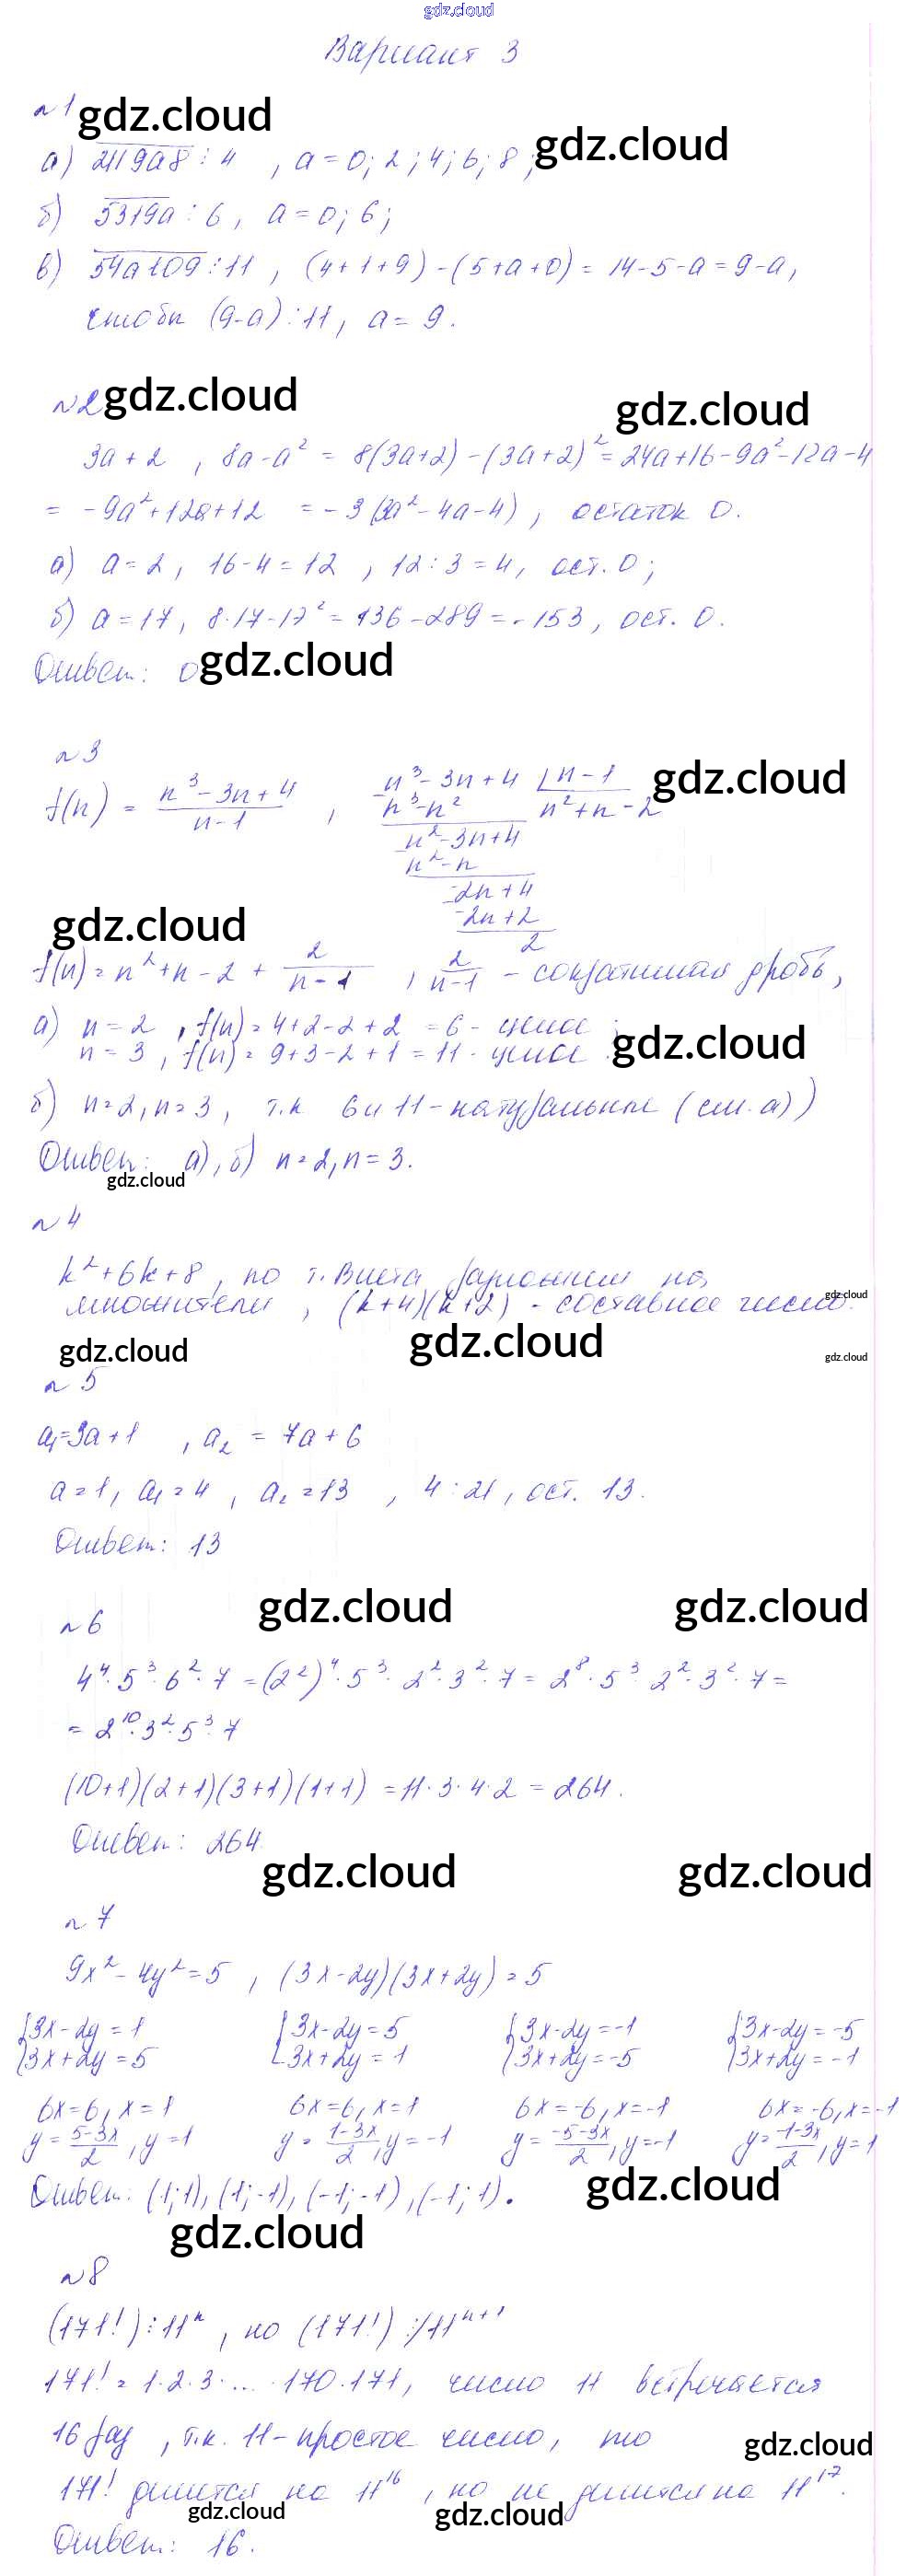 gdz.cloud
Вариант 3
№1 gdz.cloud
gdz.cloud
а) 2119a8 ⋮ 4 , a = 0; 2; 4; 6; 8;
б) 5319a ⋮ 6, a = 0; 6;
в) 54a109 ⋮ 11, (4+1+9) - (5+a+0) = 14-5-a = 9-a,
чтобы (9-a) ⋮ 11, a = 9.
№2 gdz.cloud
gdz.cloud
3a+2 , 8a-a² = 8(3a+2) - (3a+2)² = 24a+16-9a²-12a-4
= -9a²+12a+12 = -3(3a²-4a-4), остаток 0.
а) a=2, 16-4=12 , 12:3=4, ост. 0;
б) a=17, 8·17-17² = 136-289 = -153, ост. 0.
Ответ: 0 gdz.cloud
№3
f(n) = (n³-3n+4)/(n-1) ,
n³-3n+4 | n-1
gdz.cloud
n³-n² n²+n-2
n²-3n+4
n²-n
-2n+4
gdz.cloud
-2n+2
2
f(n) = n²+n-2 + 2/(n-1) , 2/(n-1) - сократимая дробь,
а) n=2 , f(n) = 4+2-2+2 = 6 - целое ;
n=3 , f(n) = 9+3-2+1 = 11 - целое
gdz.cloud
б) n=2, n=3, т.к 6 и 11 - натуральные (см. а))
Ответ: а), б) n=2, n=3.
gdz.cloud
№4
k²+6k+8, по т. Виета разложим на
множители, (k+4)(k+2) - составное число.
gdz.cloud
gdz.cloud
gdz.cloud
gdz.cloud
№5
a₁=3a+1 , a₂ = 7a+6
a=1, a₁=4 , a₂=13 , 4:21, ост. 13.
Ответ: 13
gdz.cloud gdz.cloud
№6
4⁴·5³·6²·7 = (2²)⁴·5³·2²·3²·7 = 2⁸·5³·2²·3²·7 =
= 2¹⁰·3²·5³·7
(10+1)(2+1)(3+1)(1+1) = 11·3·4·2 = 264.
Ответ: 264.
gdz.cloud gdz.cloud
№7
9x²-4y²=5 , (3x-2y)(3x+2y)=5
{3x-2y=1 {3x-2y=5 {3x-2y=-1 {3x-2y=-5
{3x+2y=5 {3x+2y=1 {3x+2y=-5 {3x+2y=-1
6x=6, x=1 6x=6, x=1 6x=-6, x=-1 6x=-6, x=-1
y=(5-3x)/2, y=1 y=(1-3x)/2, y=-1 y=(-5-3x)/2, y=-1 y=(-1-3x)/2, y=1
Ответ: (1;1), (1;-1), (-1;-1), (-1;1).
gdz.cloud
gdz.cloud
№8
(171!) ⋮ 11ⁿ, но (171!) ⋮̸ 11ⁿ⁺¹
171! = 1·2·3·...·170·171, число 11 встречается
16 раз, т.к. 11 - простое число, то
gdz.cloud
171! делится на 11¹⁶, но не делится на 11¹⁷.
gdz.cloud
gdz.cloud
Ответ: 16.